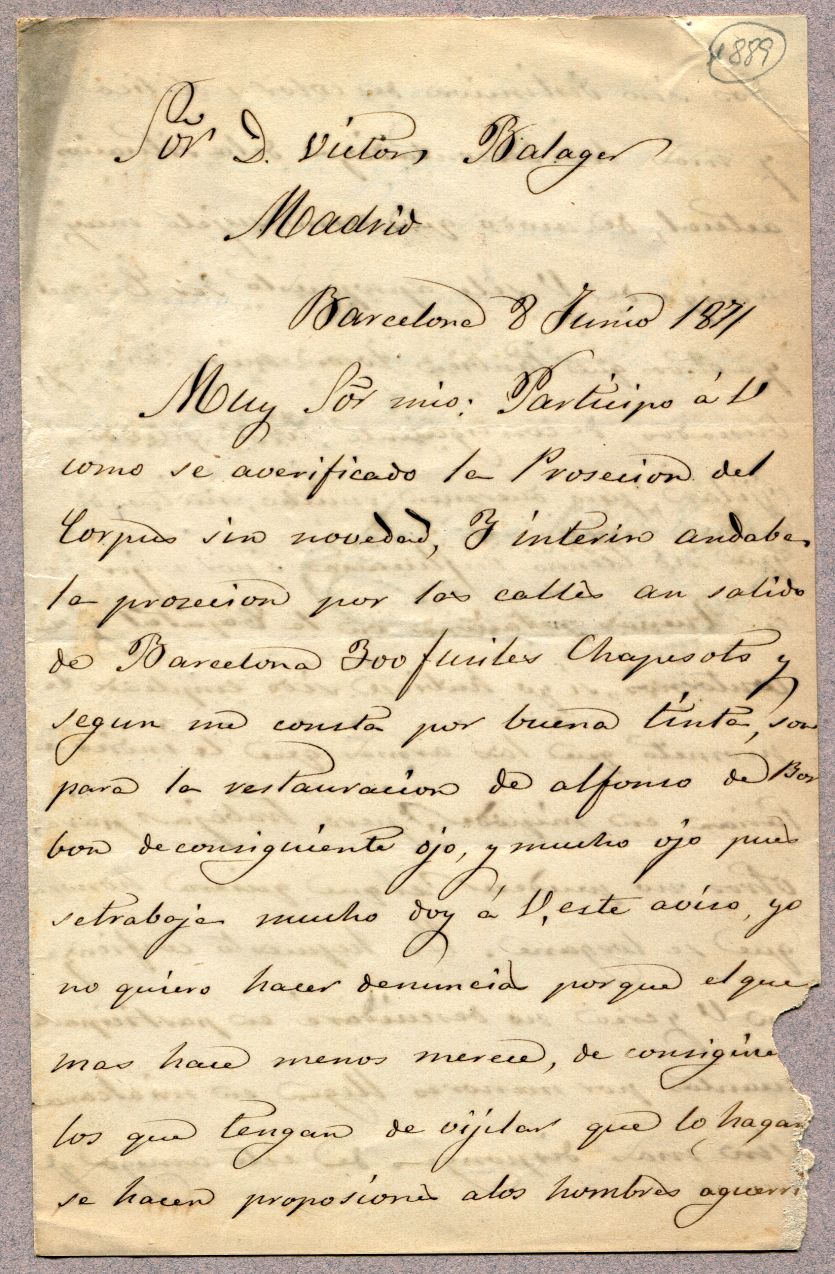 1889
Sor D. Victor Balager
Madrid
Barcelona 8 Junio 1871
Muy Sor mio: Participo á V
como se averificado la Prosecion del
Corpus sin novedad, Y interin andaba
la prosecion por las calles an salido
de Barcelona 300 fusiles Chapesots y
segun me consta por buena tinta, son
para la restauracion de alfonso de Bor
bon deconsiguiente ojo, y mucho ojo pues
setrabaja mucho doy á V, este aviso, yo
no quiero hacer denuncia porque el que
mas hace menos merece, de consiguie
los que tengan de vijilar que lo hagan
se hacen proposiones alos hombres aguerri